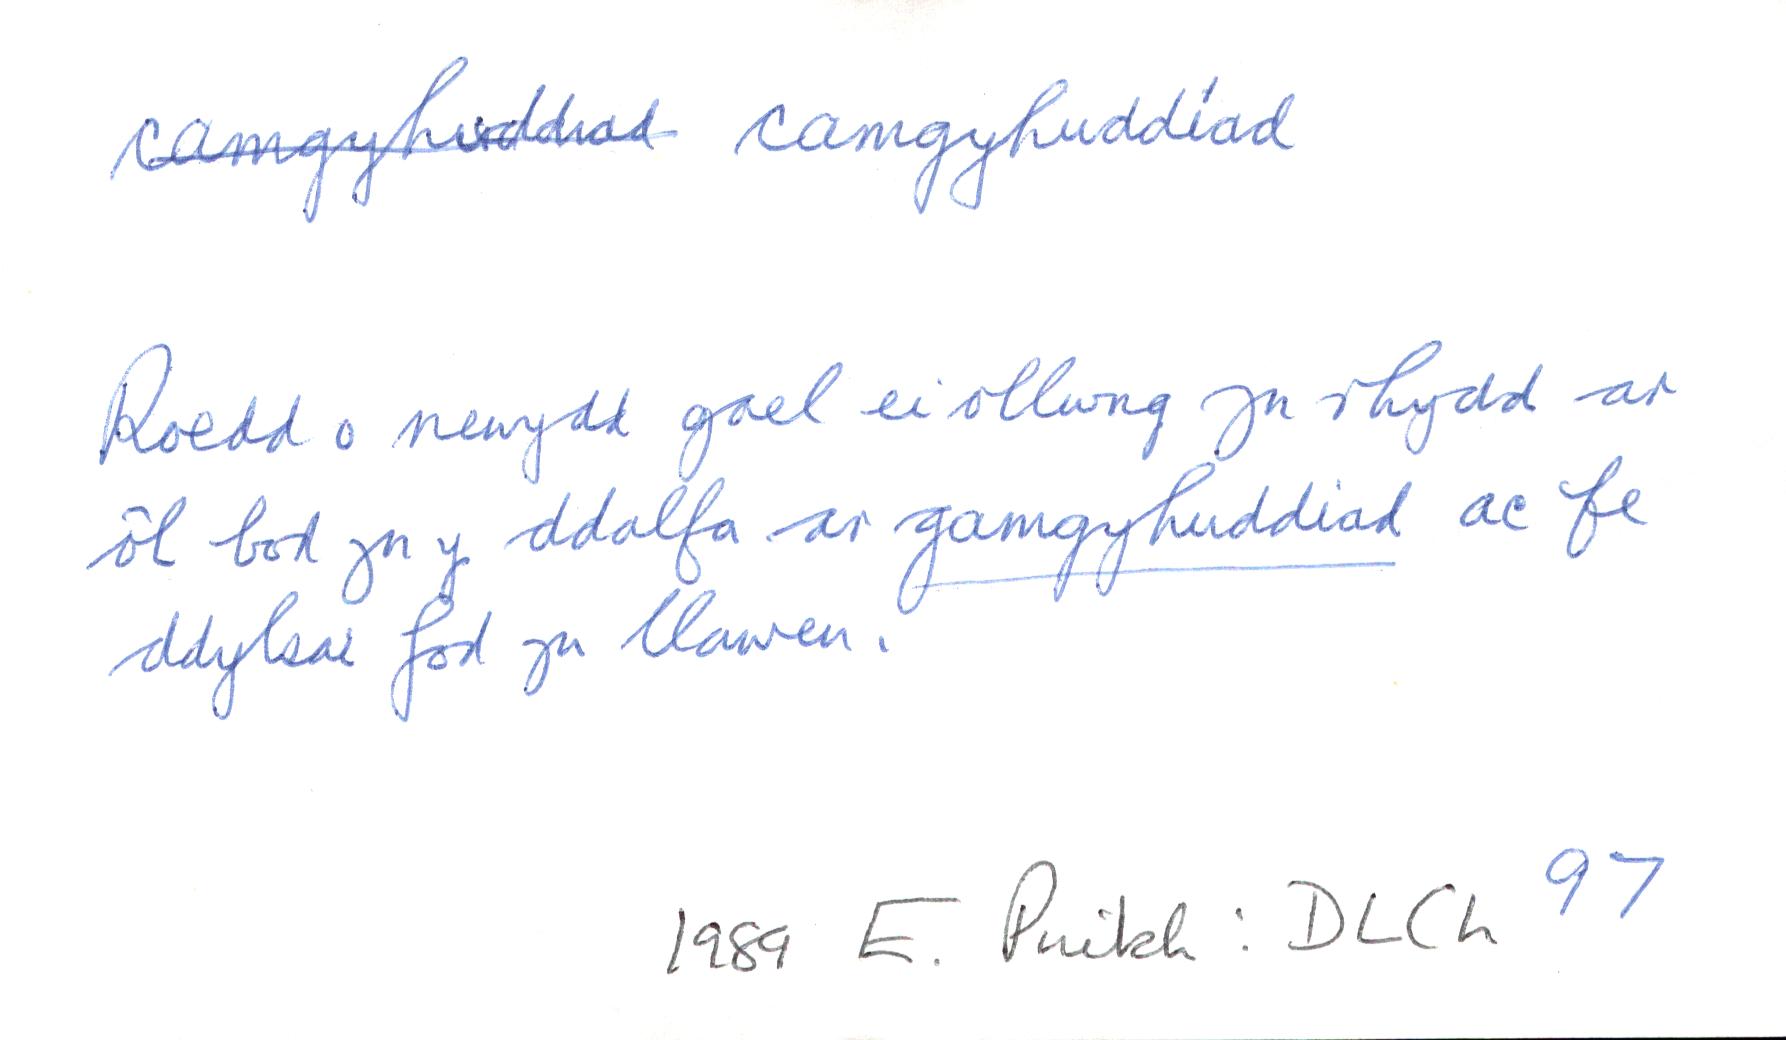 camgyhuddiad camgyhuddiad
Roedd o newydd gael ei ollwng yn rhydd ar
ôl bod yn y ddalfa ar gamgyhuddiad ac fe
ddylsai fod yn llawen.
1989 E. : DLCh 97